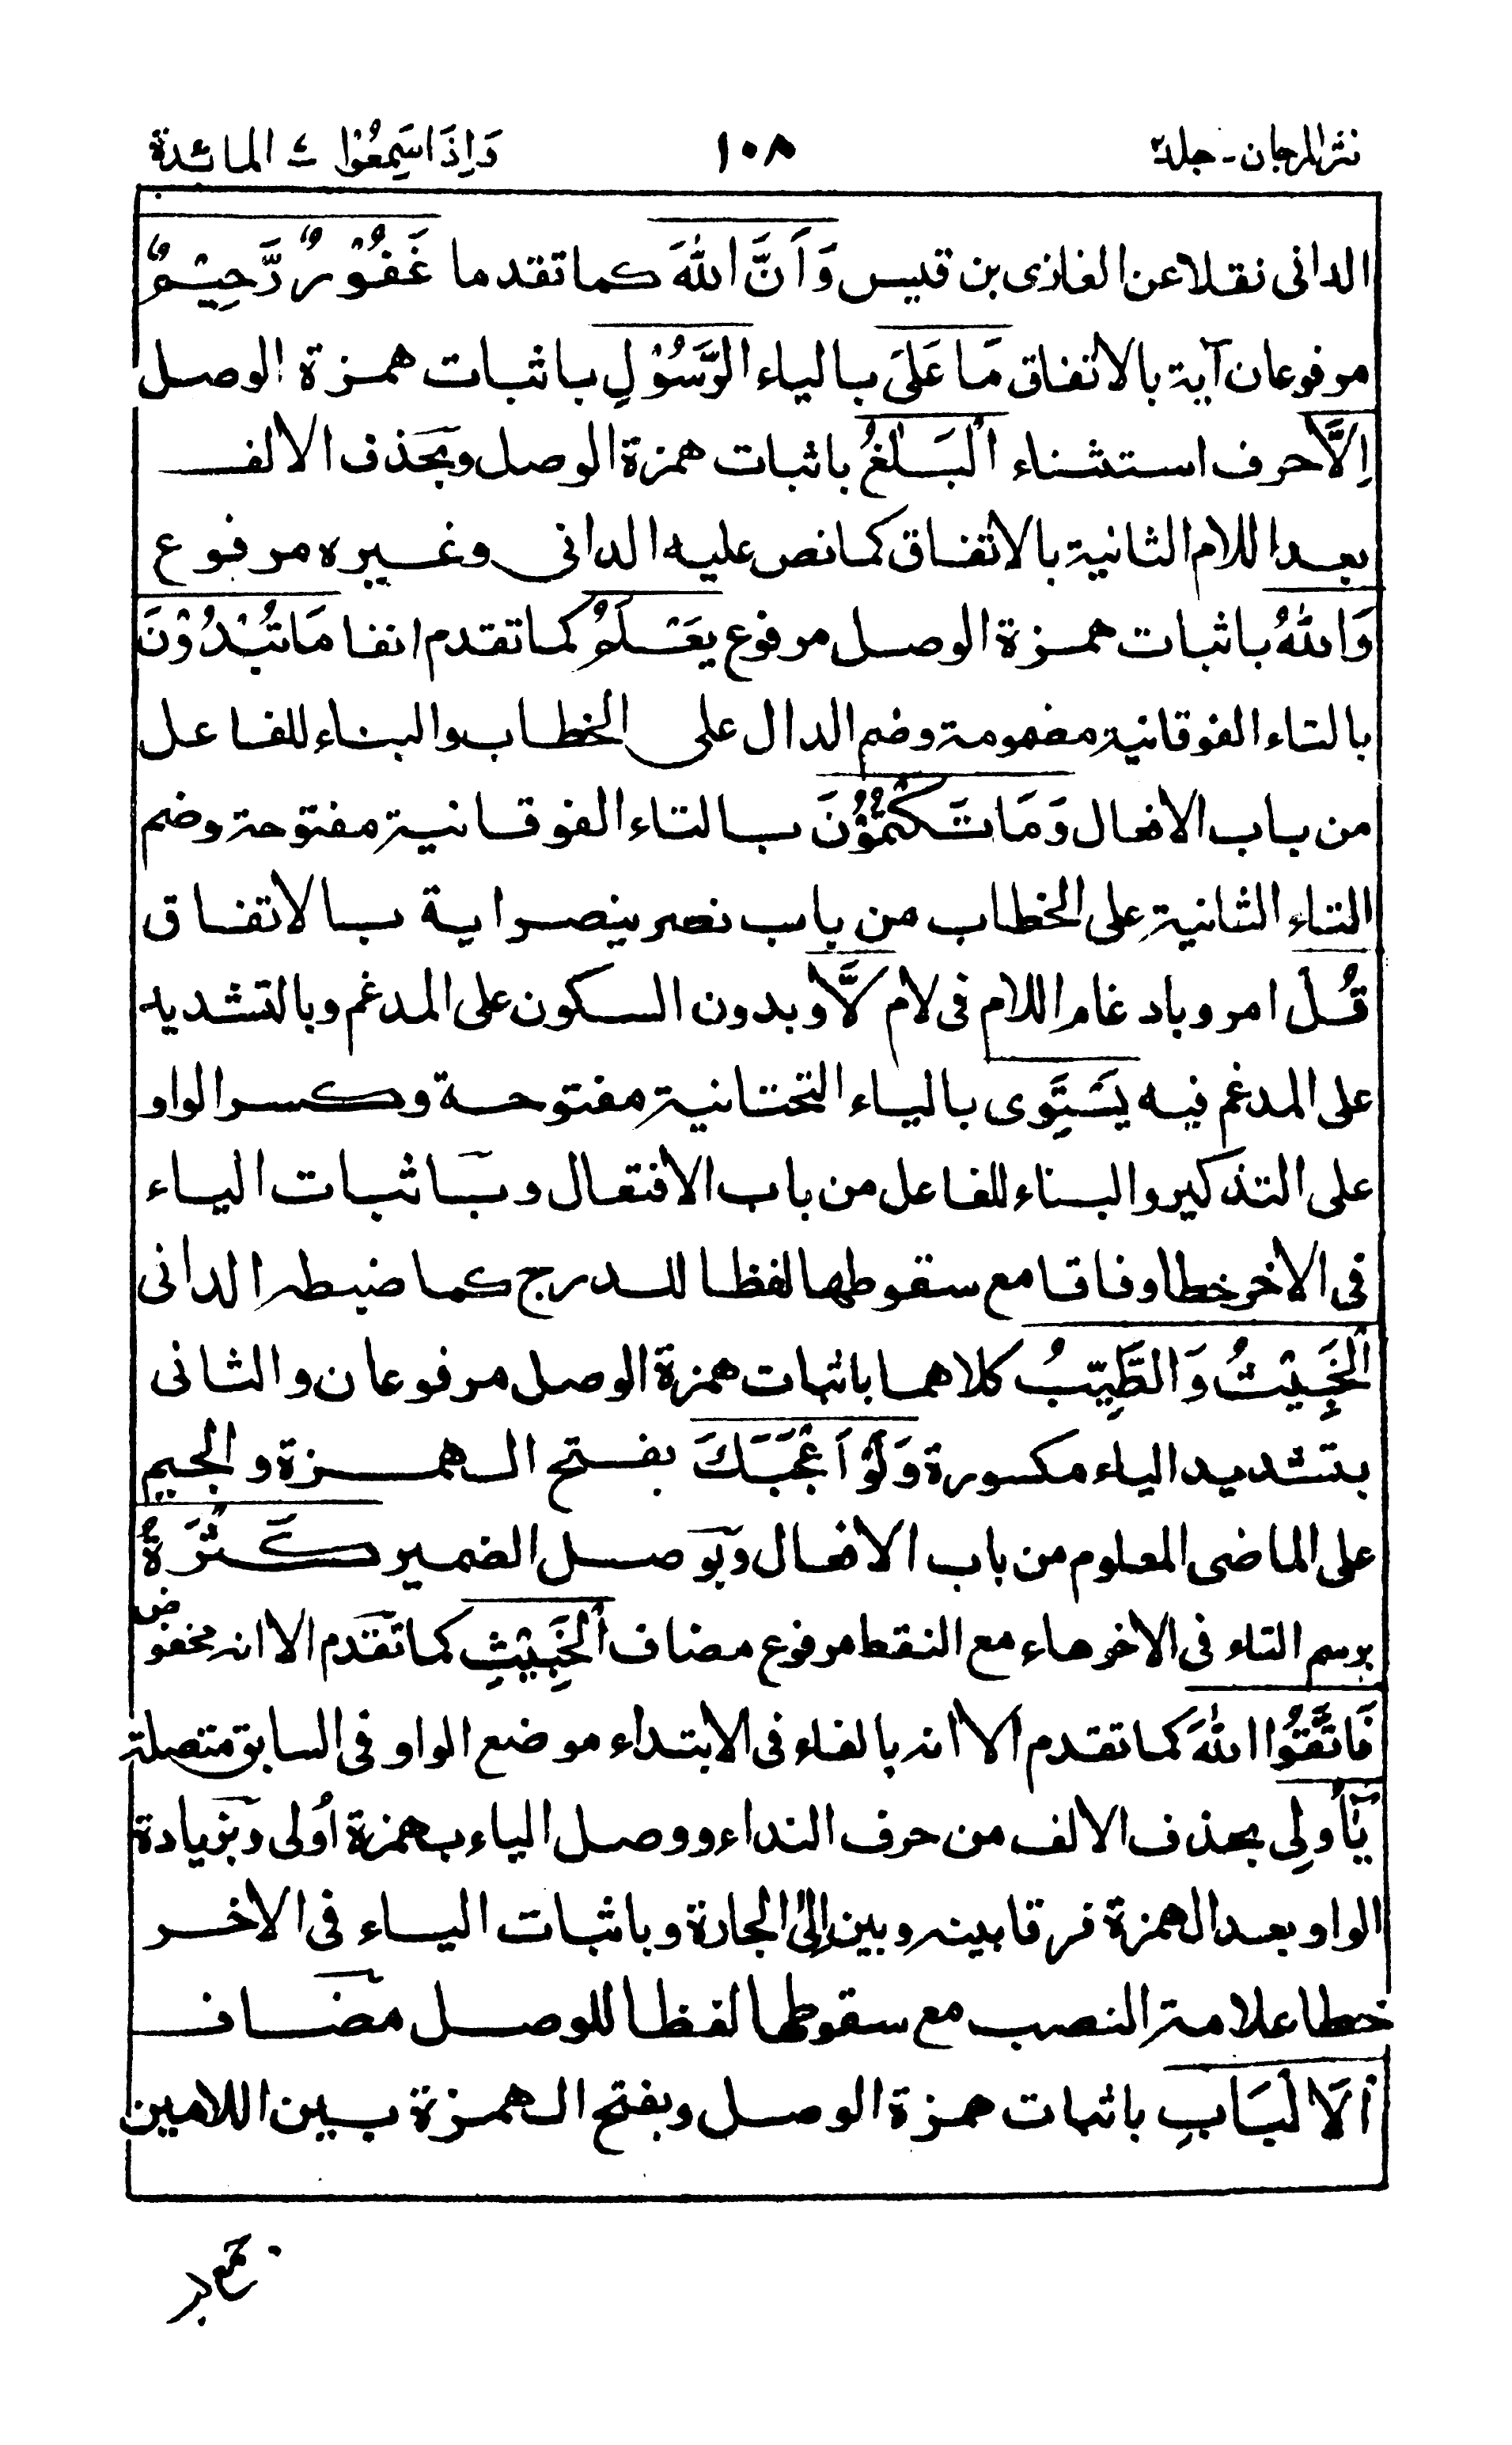 نثر المرجان - جلد ٢ ١٠٨ وَاِذَا سَمِعُوْا ٧ المائدة
الدانى نقلا عن الغازى بن قيس وَاَنَّ اللّٰهَ كما تقدما غَفُوْرٌ رَّحِيْمٌ
مرفوعان آية بالاتفاق مَا عَلَى بالياء الرَّسُوْلِ باثبات همزة الوصل
اِلَّا حرف استثناء الْبَلٰغُ باثبات همزة الوصل وبحذف الالف
بعد اللام الثانية بالاتفاق كما نص عليه الدانى وغيره مرفوع
وَاللّٰهُ باثبات همزة الوصل مرفوع يَعْلَمُ كما تقدم انفا مَا تُبْدُوْنَ
بالتاء الفوقانية مضمومة وضم الدال على الخطاب والبناء للفاعل
من باب الافعال وَمَا تَكْتُمُوْنَ بالتاء الفوقانية مفتوحة وضم
التاء الثانية على الخطاب من باب نصر ينصر اية بالاتفاق
قُلْ امر وبادغام اللام فى لام لَّا وبدون السكون على المدغم وبالتشديد
على المدغم فيه يَسْتَوِى بالياء التحتانية مفتوحة وكسر الواو
على التذكير والبناء للفاعل من باب الافتعال وباثبات الياء
فى الاخر خطا وفاقا مع سقوطها لفظا للدرج كما ضبطه الدانى
الْخَبِيْثُ وَالطَّيِّبُ كلاهما باثبات همزة الوصل مرفوعان والثانى
بتشديد الياء مكسورة وَلَوْ اَعْجَبَكَ بفتح الهمزة والجيم
على الماضى المعلوم من باب الافعال وبوصل الضمير كَثْرَةُ
برسم التاء فى الاخر هاء مع النقط مرفوع مضاف الْخَبِيْثِ كما تقدم الا انه مخفوض
فَاتَّقُوا اللّٰهَ كما تقدم الا انه بالفاء فى الابتداء موضع الواو فى السابق متصلة
يٰٓاُولِى بحذف الالف من حرف النداء ووصل الياء بهمزة اُولى وبزيادة
الواو بعد الهمزة فرقا بينه وبين اِلَى الجارة وباثبات الياء فى الاخر
خطا علامة النصب مع سقوطها لفظا للوصل مضاف
الْاَلْبَابِ باثبات همزة الوصل وبفتح الهمزة بين اللامين